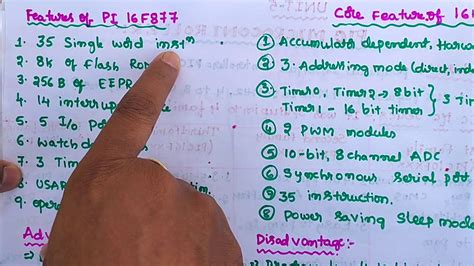 Features of PI 16F877
1. 35 Single word instⁿ
2. 8K of Flash
3. 256B of EEPR
4. 14 interrup
5. 5 I/o Po
6. watchd
7. 3 Tim
8. USAR
9. oper
Adv
Core Feature of 16
① Accumulator dependent, Harv
② 3. Addressing mode (direct, indi
③ Timer0, Timer2 → 8bit } 3
Timer1 - 16 bit timer
④ 2 PWM modules
⑤ 10-bit, 8 channel ADC
⑥ Synchronous serial port
⑦ 35 instruction.
⑧ Power saving Sleep mode
Disadvantage:-